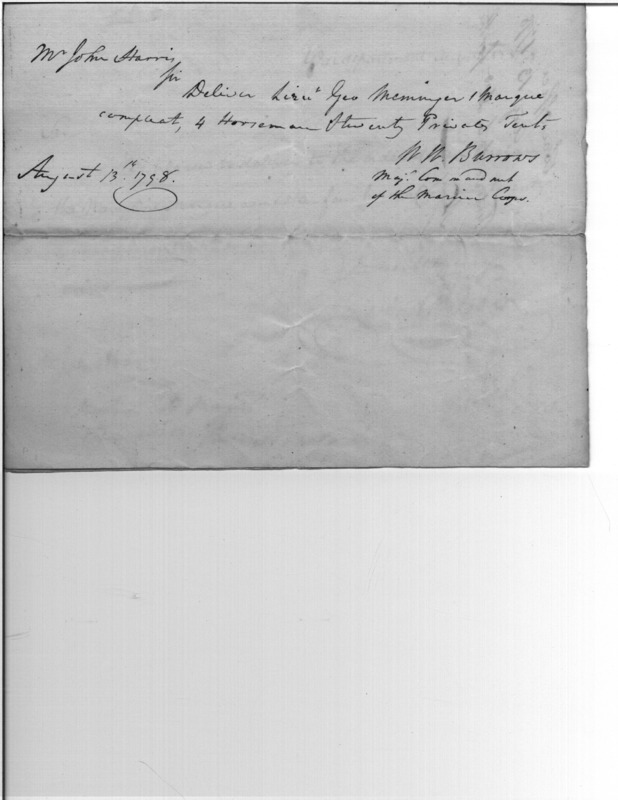 Mr John Harris
Sir
Deliver Lieut Geo Meminger 1 Marque
compleat, 4 Horseman & twenty Privates Tents
W W Burrows
August 13th 1798.
Majr Commandant
of the Marine Corps.